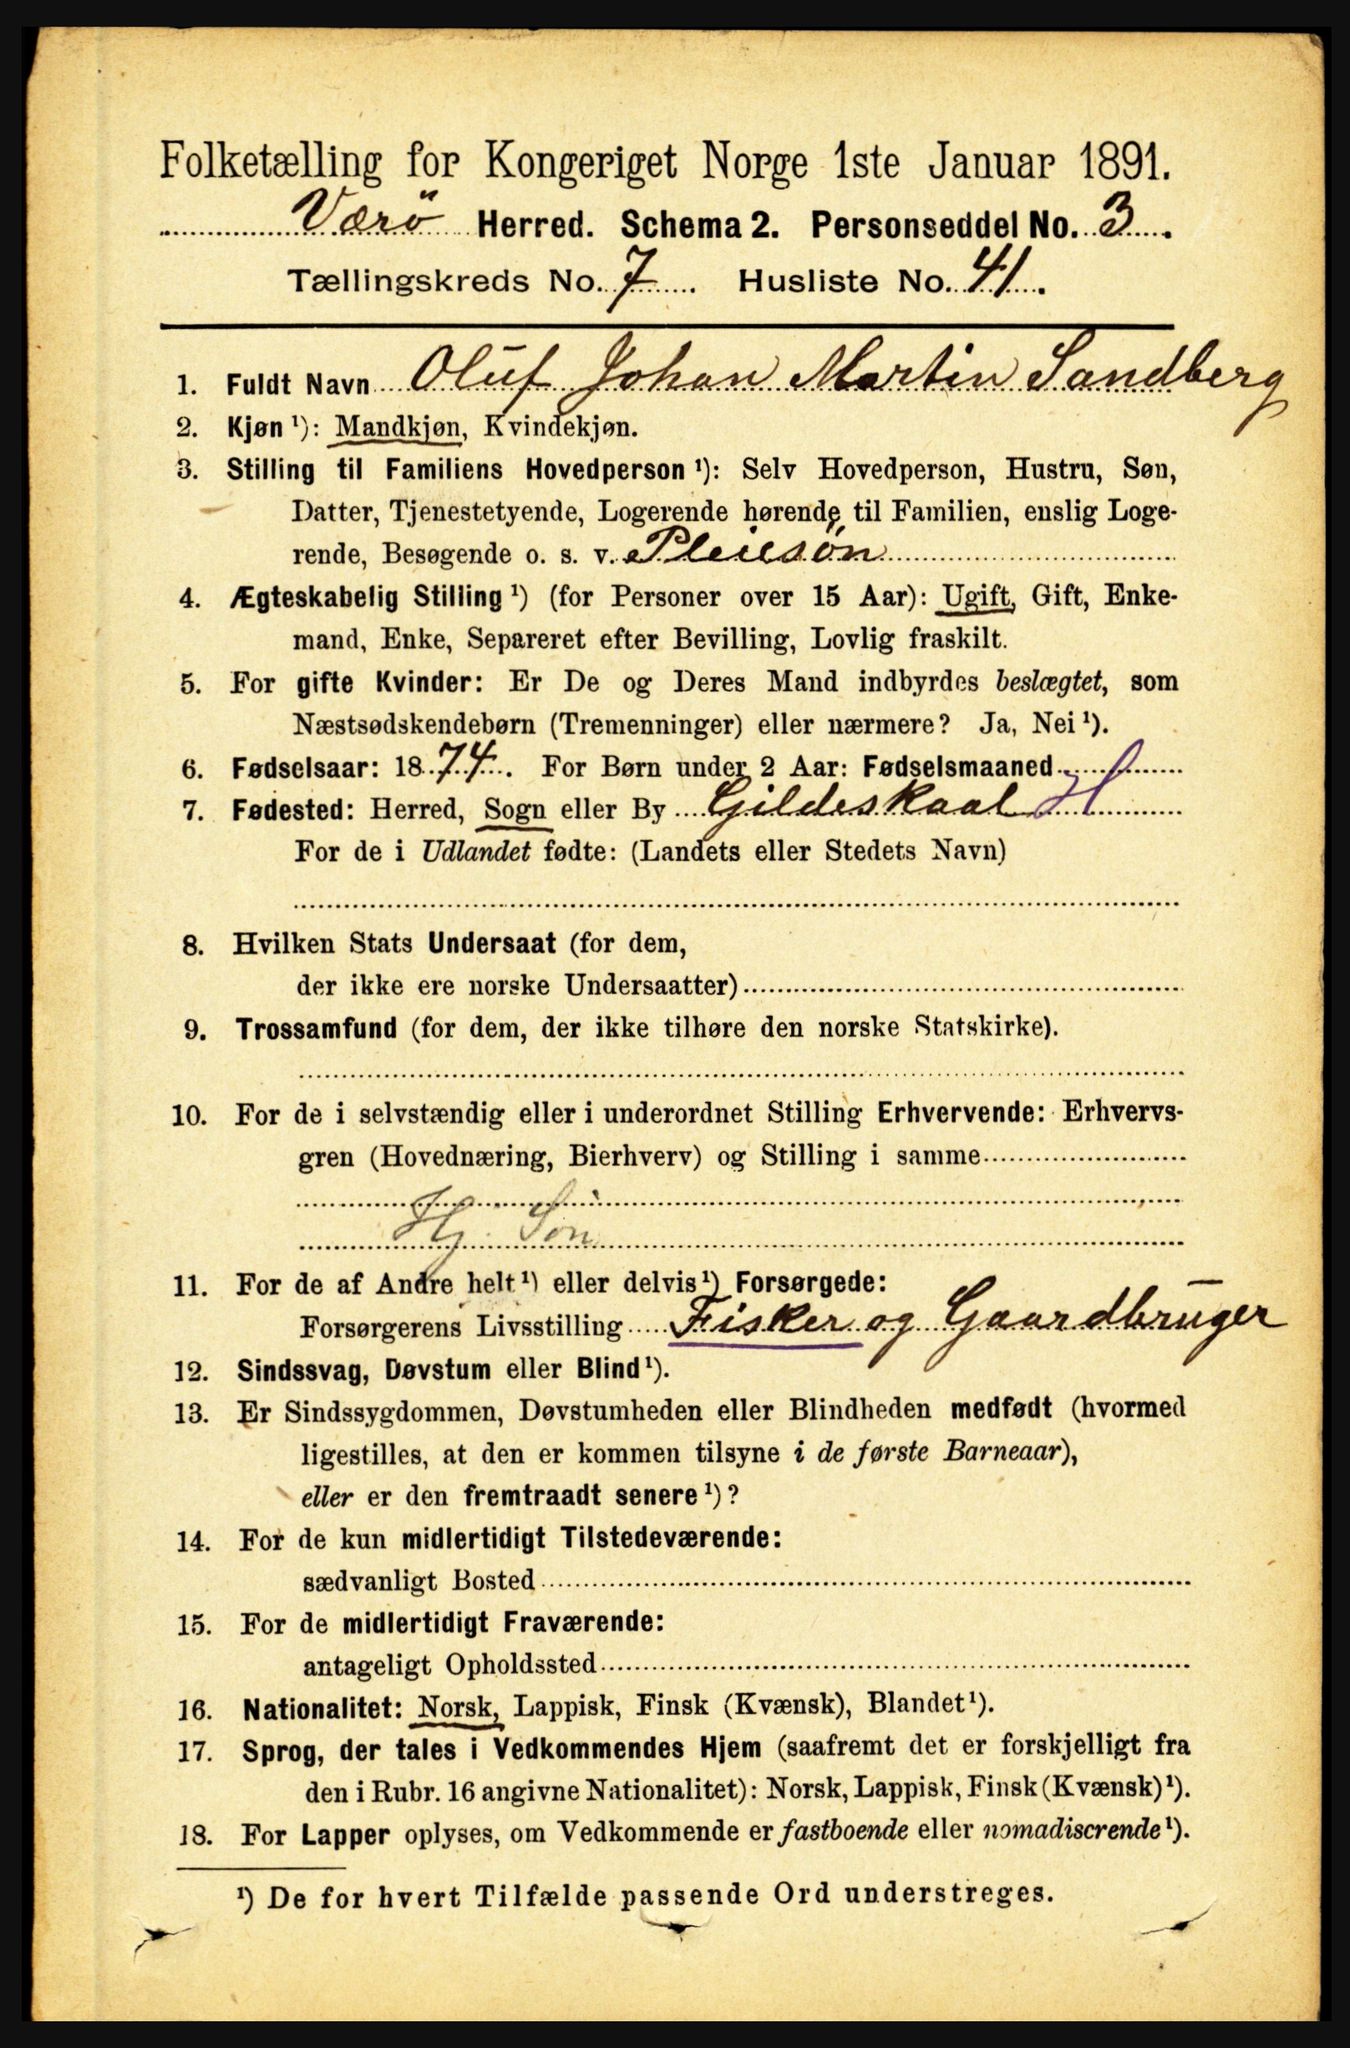 Folketælling for Kongeriget Norge 1ste Januar 1891.
Værö Herred. Schema 2. Personseddel No. 3.
Tællingskreds No. 7. Husliste No. 41.
1. Fuldt Navn Oluf Johan Martin Sandberg
2. Kjøn ¹): Mandkjøn, Kvindekjøn.
3. Stilling til Familiens Hovedperson ¹): Selv Hovedperson, Hustru, Søn,
Datter, Tjenestetyende, Logerende hørende til Familien, enslig Loge-
rende, Besøgende o. s. v. Pleiesön
4. Ægteskabelig Stilling ¹) (for Personer over 15 Aar): Ugift, Gift, Enke-
mand, Enke, Separeret efter Bevilling, Lovlig fraskilt.
5. For gifte Kvinder: Er De og Deres Mand indbyrdes beslægtet, som
Næstsødskendebørn (Tremenninger) eller nærmere? Ja, Nei ¹).
6. Fødselsaar: 1874. For Børn under 2 Aar: Fødselsmaaned
7. Fødested: Herred, Sogn eller By Gildeskaal H
For de i Udlandet fødte: (Landets eller Stedets Navn)
8. Hvilken Stats Undersaat (for dem,
der ikke ere norske Undersaatter)
9. Trossamfund (for dem, der ikke tilhøre den norske Statskirke).
10. For de i selvstændig eller i underordnet Stilling Erhvervende: Erhvervs-
gren (Hovednæring, Bierhverv) og Stilling i samme
Hj. Søn
11. For de af Andre helt ¹) eller delvis ¹) Forsørgede:
Forsørgerens Livsstilling Fisker og Gaardbruger
12. Sindssvag, Døvstum eller Blind ¹).
13. Er Sindssygdommen, Døvstumheden eller Blindheden medfødt (hvormed
ligestilles, at den er kommen tilsyne i de første Barneaar),
eller er den fremtraadt senere ¹)?
14. For de kun midlertidigt Tilstedeværende:
sædvanligt Bosted
15. For de midlertidigt Fraværende:
antageligt Opholdssted
16. Nationalitet: Norsk, Lappisk, Finsk (Kvænsk), Blandet ¹).
17. Sprog, der tales i Vedkommendes Hjem (saafremt det er forskjelligt fra
den i Rubr. 16 angivne Nationalitet): Norsk, Lappisk, Finsk (Kvænsk) ¹).
18. For Lapper oplyses, om Vedkommende er fastboende eller nomadiscrende ¹).
¹) De for hvert Tilfælde passende Ord understreges.